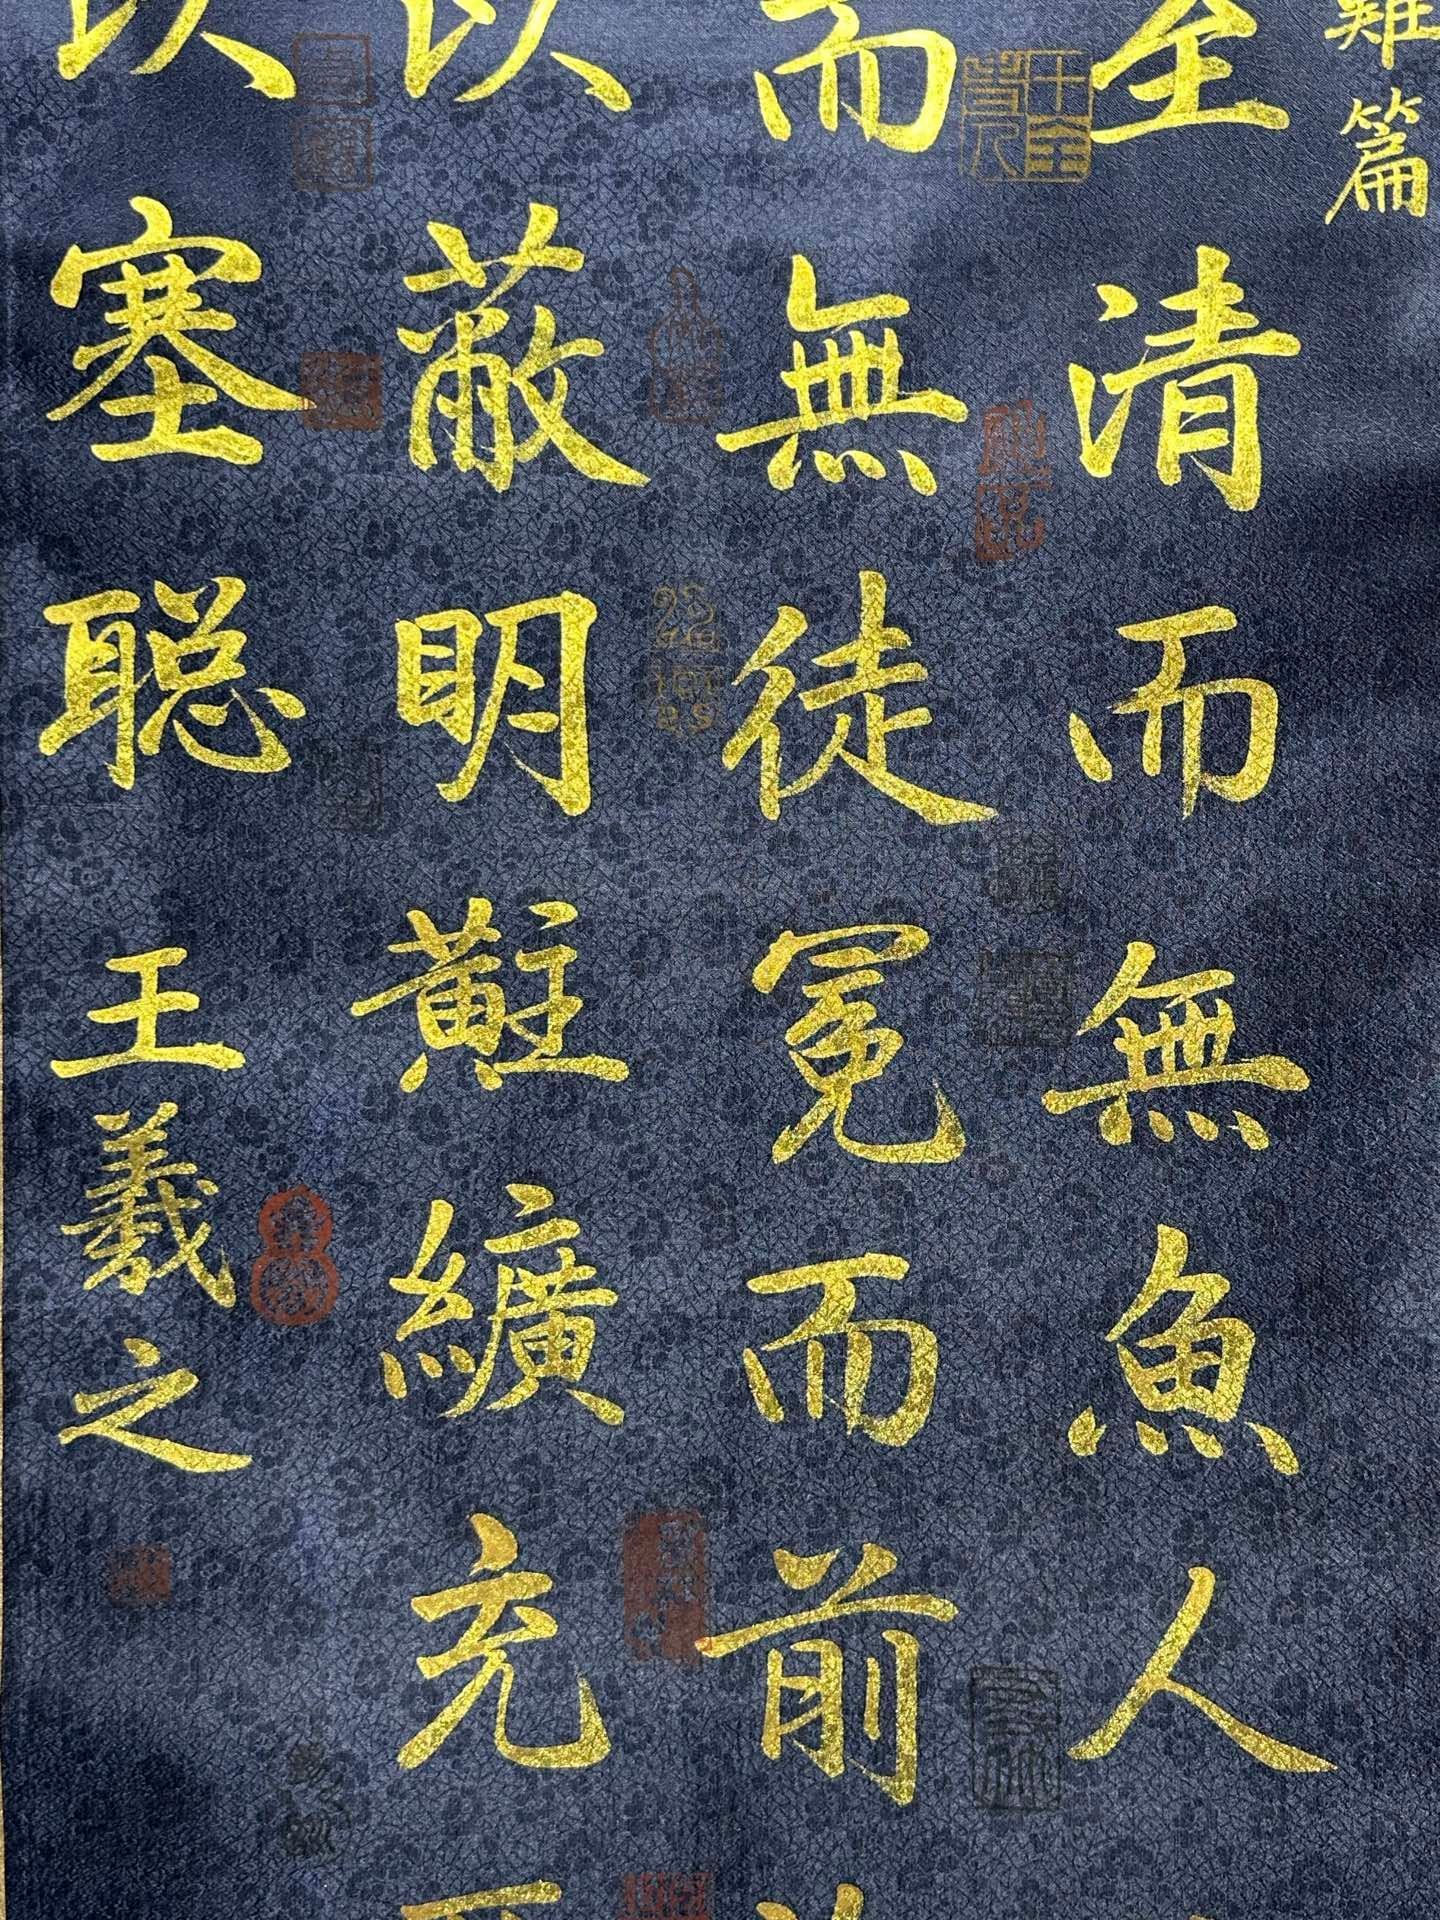 難篇
至清而無魚人
而無徒冕而前
以蔽明黈纊充
以塞聰
王羲之